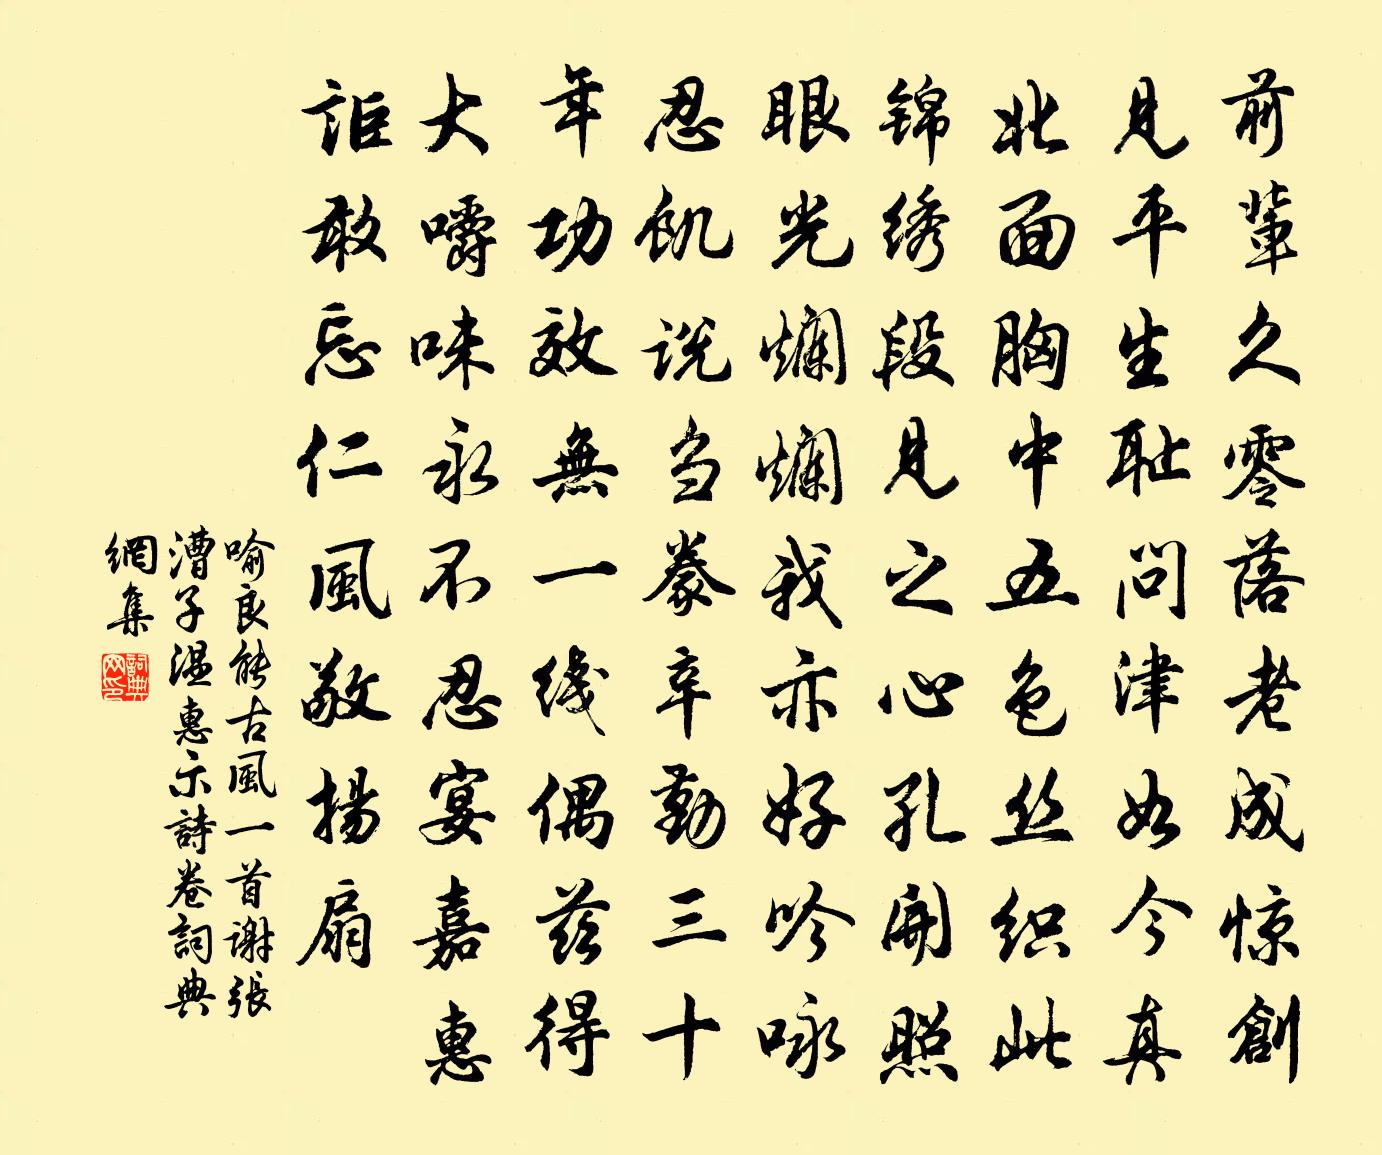 前輩久零落老成惊創
見平生耻問津如今真
北面胸中五色丝织此
锦绣段見之心孔開照
眼光爛爛我亦好吟咏
忍饥说刍豢辛勤三十
年功效無一线偶兹得
大嚼味永不忍宴嘉惠
詎敢忘仁風敬揚扇
喻良能古風一首謝張
漕子温惠示詩卷詞典
網集
詞典网印